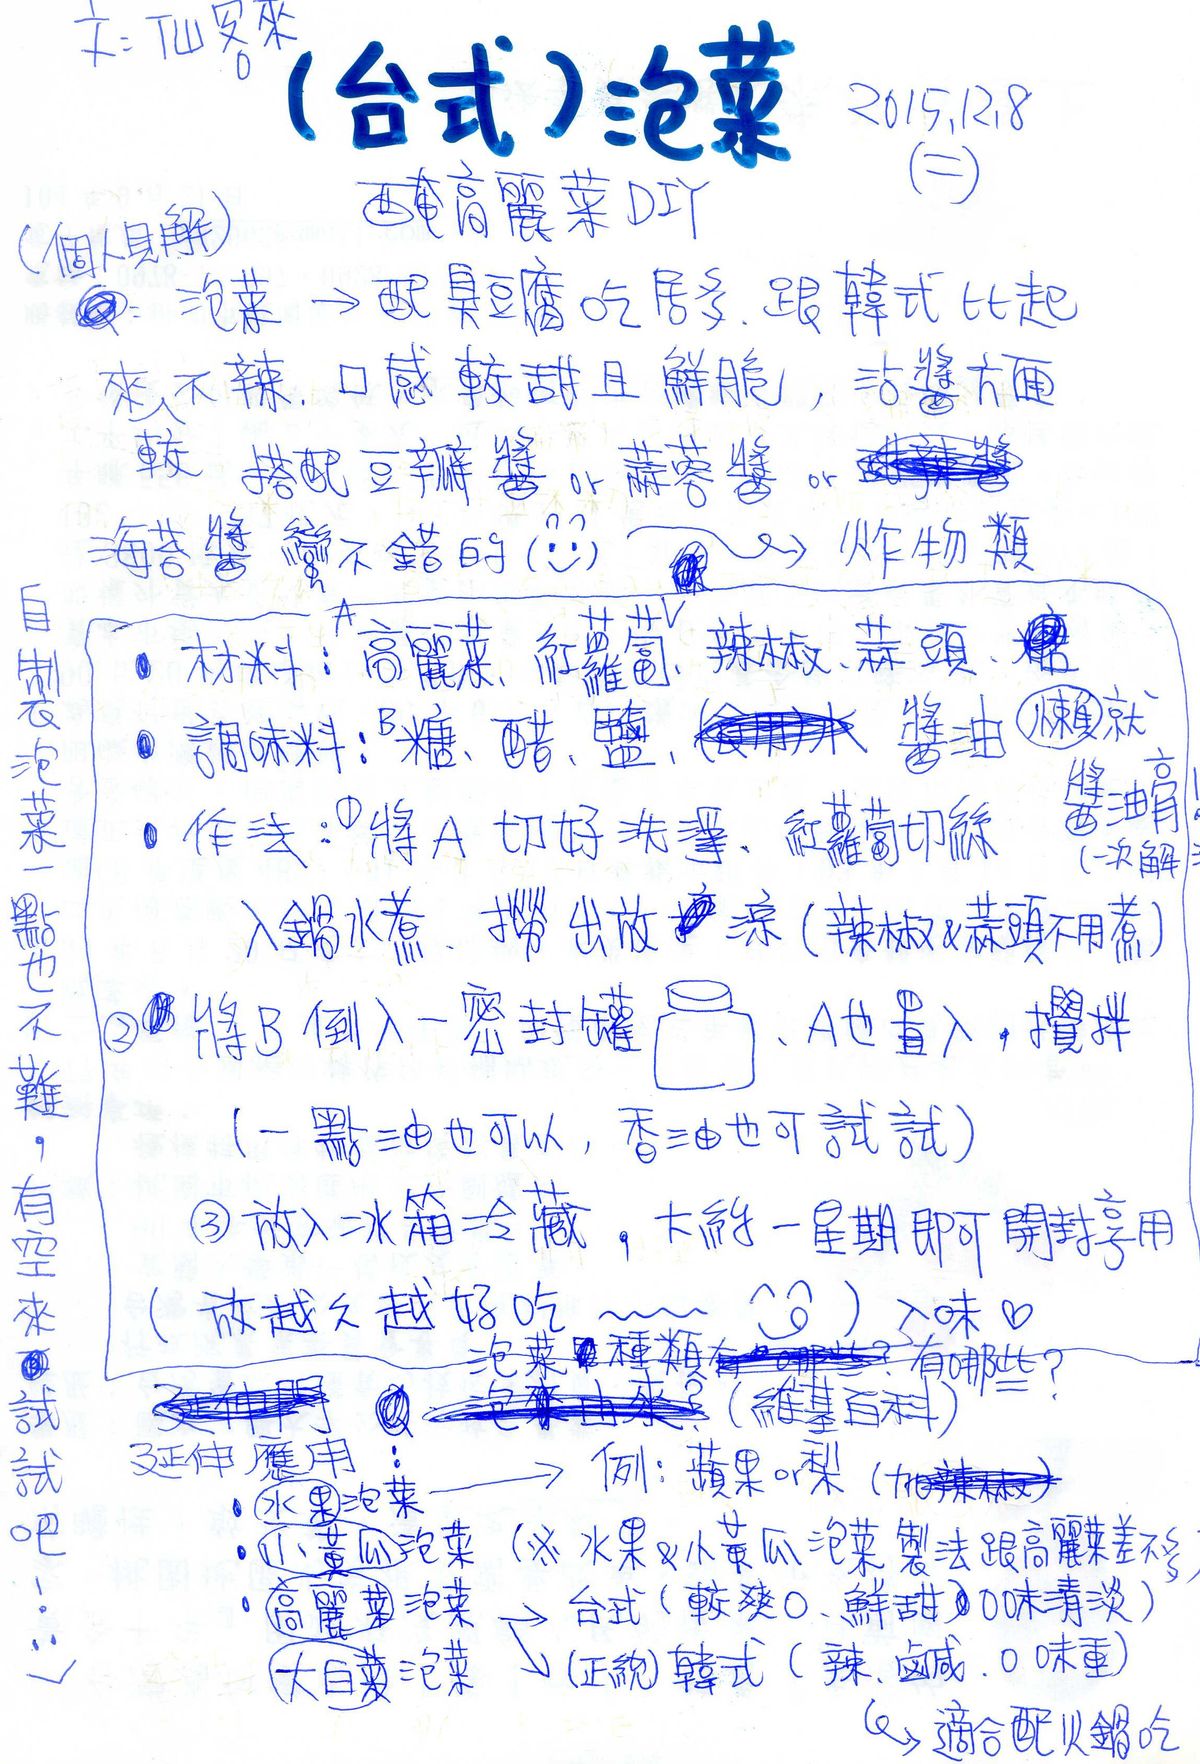 文:TW客來
(台式)泡菜
2015.12.8
(二)
醃高麗菜DIY
(個人見解)
泡菜→配臭豆腐吃居多、跟韓式比起
來不辣、口感較甜且鮮脆,沾醬方面
較搭配豆瓣醬 or 蒜蓉醬 or
海苔醬蠻不錯的(^^) → 炸物類
• 材料:A高麗菜、紅蘿蔔、辣椒、蒜頭、
• 調味料:B糖、醋、鹽、醬油 懶就
醬油膏
(一次解
• 作法:①將A切好洗澤、紅蘿蔔切絲
入鍋水煮、撈出放涼(辣椒&蒜頭不用煮)
② 將B倒入一密封罐、A也置入,攪拌
(一點油也可以,香油也可試試)
③放入冰箱冷藏,大約一星期即可開封享用
(放越久越好吃~~~)入味♡
自製泡菜一點也不難,有空來試試吧!
泡菜種類有哪些?
(維基百科)
延伸應用:
• 水果泡菜 → 例:蘋果or梨
• 小黃瓜泡菜 (※水果&小黃瓜泡菜製法跟高麗菜差不多)
• 高麗菜泡菜 → 台式(較爽口、鮮甜、口味清淡)
大白菜泡菜 ↘ (正統)韓式(辣、鹹、口味重)
↳適合配火鍋吃